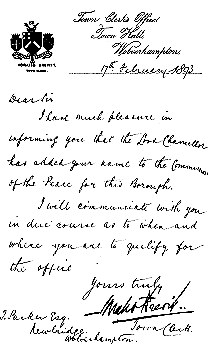 Town Clerk's Office
Town Hall,
Wolverhampton,
17th February 1893
Dear Sir
I have much pleasure in
informing you that the Lord Chancellor
has added your name to the Commission
of the Peace for this Borough.
I will communicate with you
in due course as to when and
where you are to qualify for
the office
Yours truly
Town Clerk.
J. Parker Esq.
Newbridge
Wolverhampton.